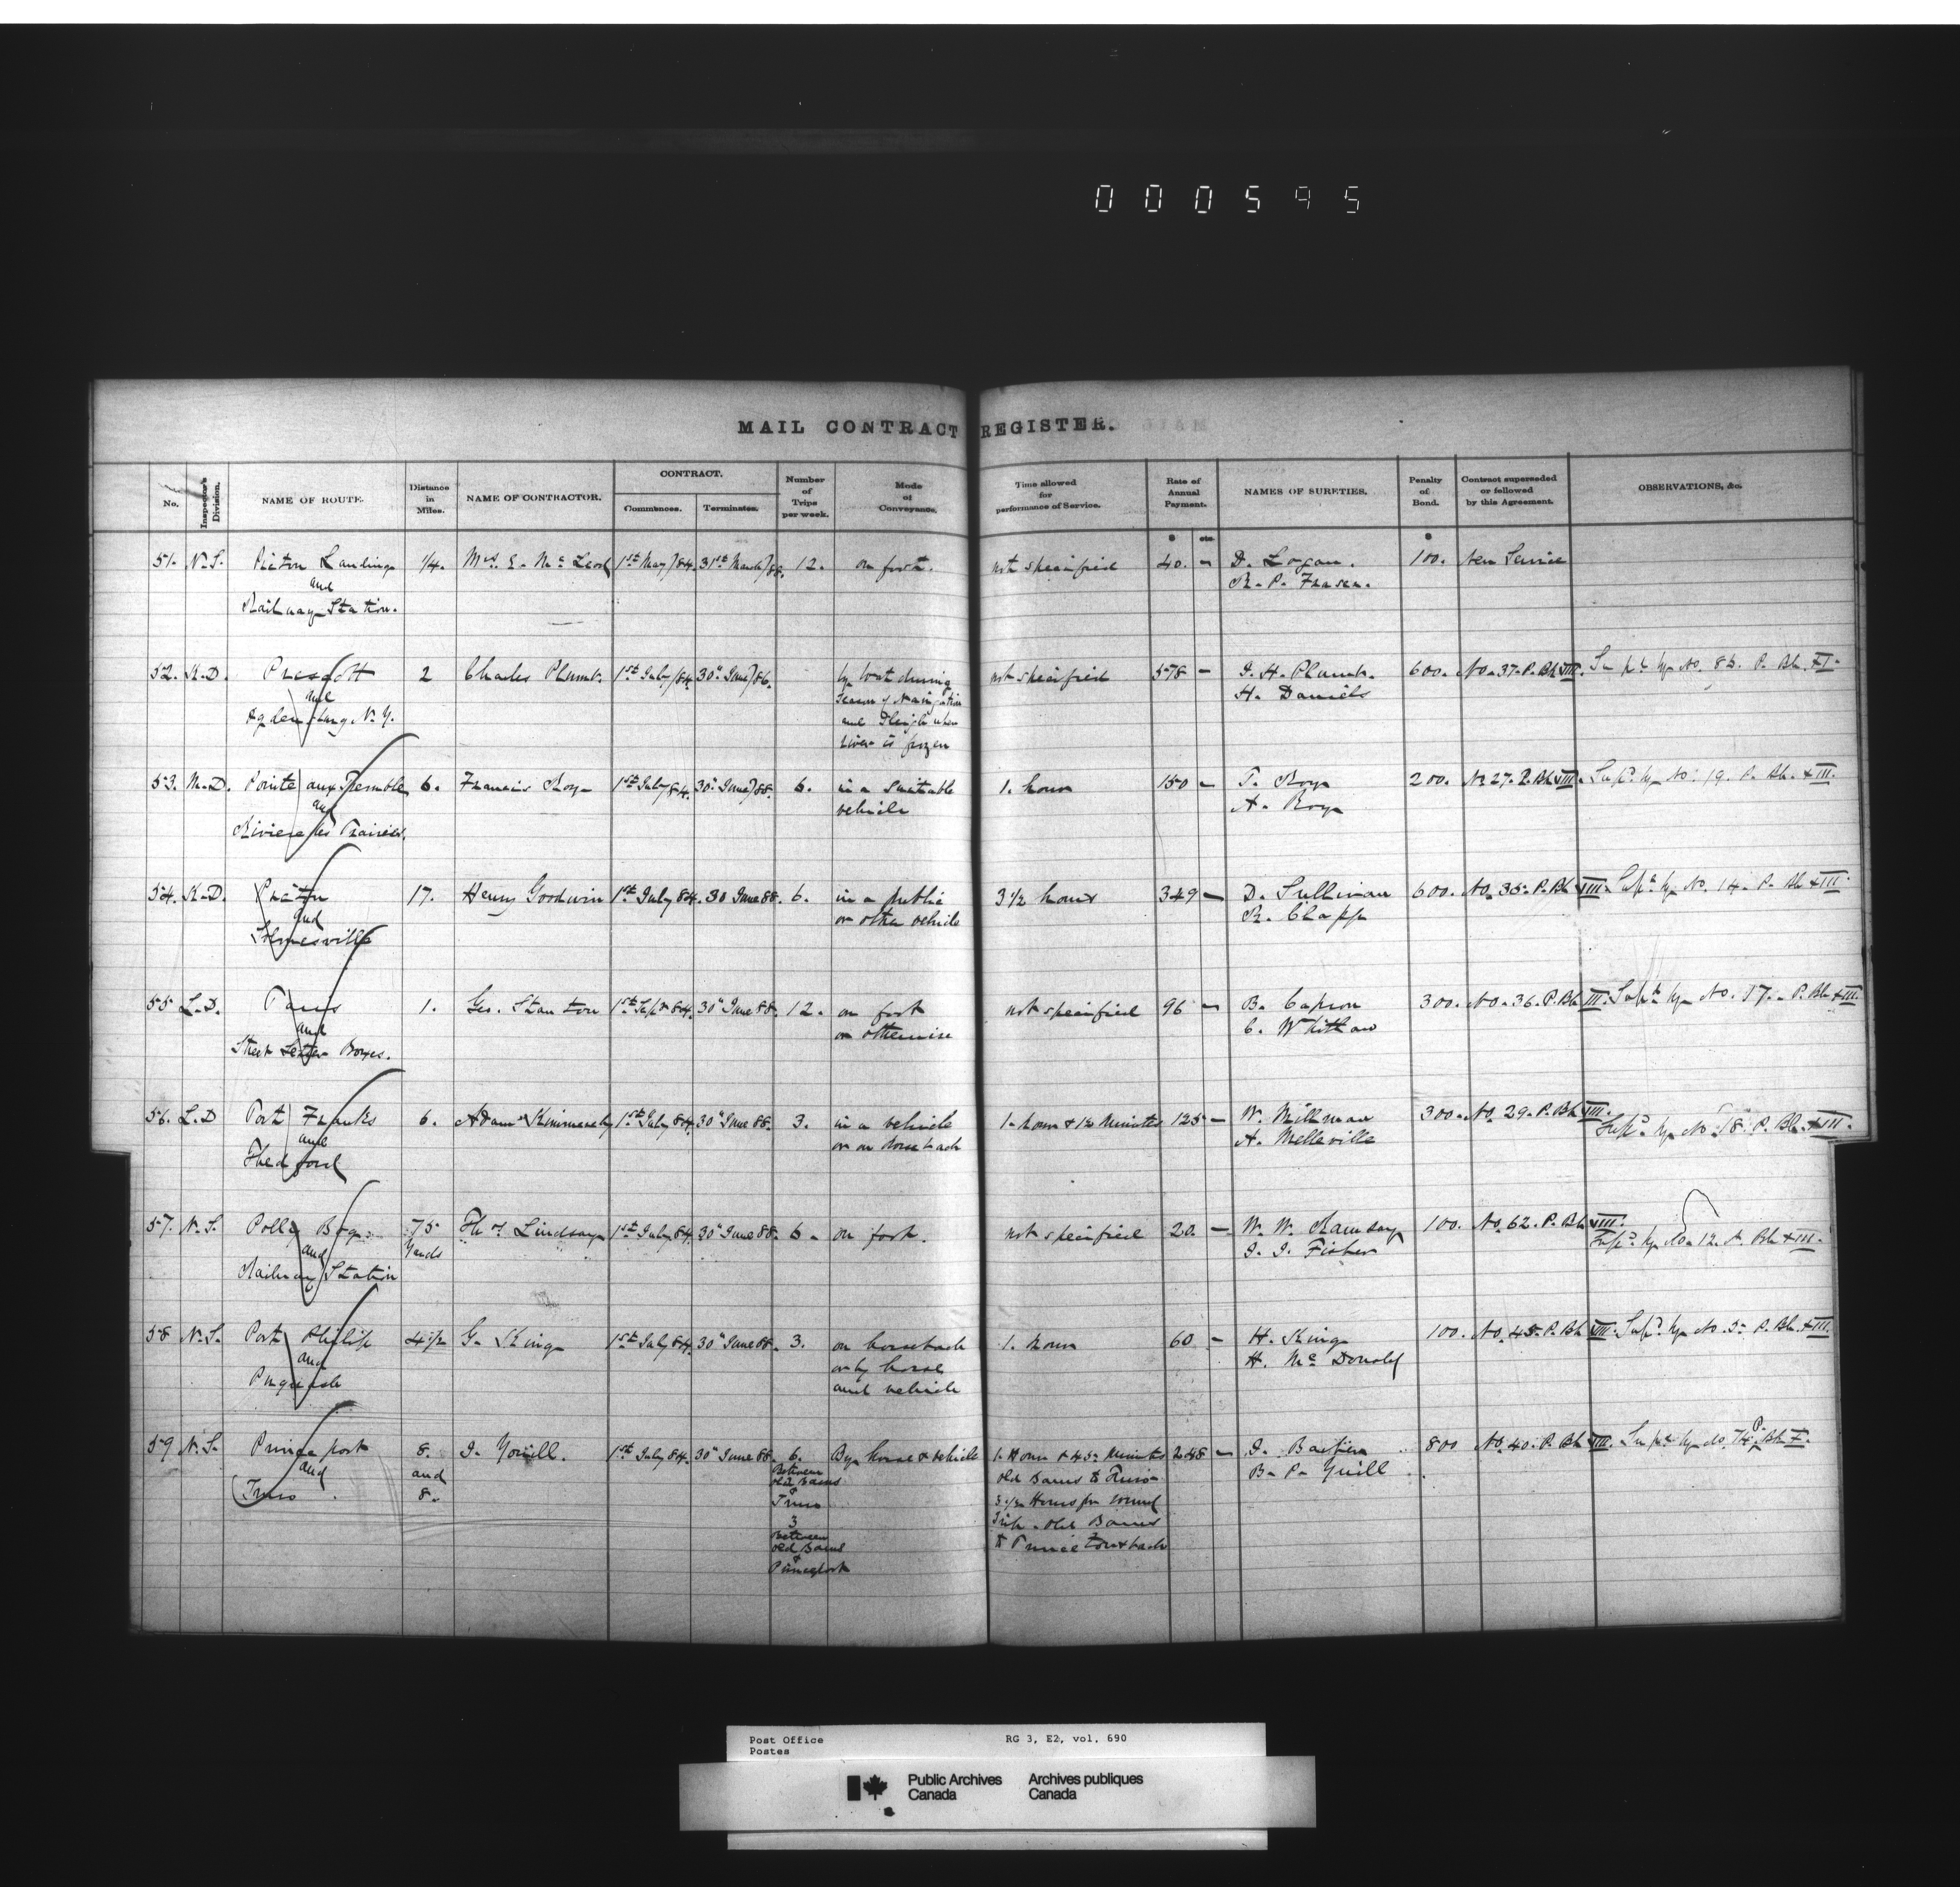 000595
MAIL CONTRACT REGISTER.
No. Inspector's Division. NAME OF ROUTE. Distance in Miles. NAME OF CONTRACTOR. CONTRACT. Commences. Terminates. Number of Trips per week. Mode of Conveyance. Time allowed for performance of Service. Rate of Annual Payment. NAMES OF SURETIES. Penalty of Bond. Contract superseded or followed by this Agreement. OBSERVATIONS, &c.
$ cts. $
51. N.S. Pictou Landing 1/4. Mrs E. Mc Leod 1st May/84. 31st March/88. 12. on foot. not specified 40. – D. Logan. 100. New Service
and R. P. Fraser.
Railway Station.
52. K.D. Prescott 2 Charles Plumb. 1st July/84. 30th June/86. by boat during not specified 578 – J. H. Plumb. 600. No. 37. P. Bk VIII. Supd by No. 85. P. Bk. XI.
and season of Navigation H. Daniels
Ogdensburg N.Y. and Sleigh when
river is frozen
53. M.D. Pointe aux Trembles 6. Francis Roy 1st July/84. 30th June/88. 6. in a suitable 1. hour 150 – T. Roy 200. No 27. P. Bk VIII. Supd by No. 19. P. Bk. XIII.
and vehicle A. Roy
Riviere des Prairies.
54. K.D. Picton 17. Henry Goodwin 1st July 84. 30 June 88. 6. in a public 3 1/2 hours 349 – D. Sullivan 600. No. 35. P. Bk VIII. Supd by No. 14. P. Bk XIII.
and or other vehicle R. Clapp
55 L.D. Paris 1. Geo. Stanton 1st Sept 84. 30th June 88. 12. on foot not specified 96 – B. Capron 300. No. 36. P. Bk VIII. Supd by No. 17. P. Bk XIII.
and or otherwise C. Whitlaw
Street Letter Boxes.
56. L.D Port Franks 6. Adam Kimmerly 1st July 84. 30th June 88. 3. in a vehicle 1. hour & 1/2 Minutes 125 – W. Millman 300. No. 29. P. Bk VIII.
and or on horseback A. Melleville Supd by No. 18. P. Bk. XIII.
Thedford
57. N.S. Polly Bog 75 Thos Lindsay 1st July 84. 30th June 88. 6. on foot. not specified 20. – W. W. Ramsay 100. No. 62. P. Bk VIII.
and Yards J. J. Fisher Supd by No. 12. P. Bk XIII.
Railway Station
58 N.S. Port Philip 4 1/2 G. King 1st July 84. 30th June 88. 3. on horseback 1. hour 60 – H. King 100. No. 45. P. Bk VIII. Supd by No. 3. P. Bk. XIII.
and or by horse H. Mc Donald
Pugwash and vehicle
59 N.S. Princeport 8. J. Yuill. 1st July 84. 30th June 88. 6. By horse & vehicle 1. Hour & 45 Minutes 248 – 800 No. 40. P. Bk VIII. Supd by No. 74. P. Bk X.
and and Between Old Barns to Truro B. P. Yuill
Truro 8. Old Barns 3 1/2 Hours for round
& Truro trip. Old Barns
3 to Princeport & back
Between
Old Barns
&
Princeport
Post Office RG 3, E2, vol. 690
Postes
Public Archives Archives publiques
Canada Canada